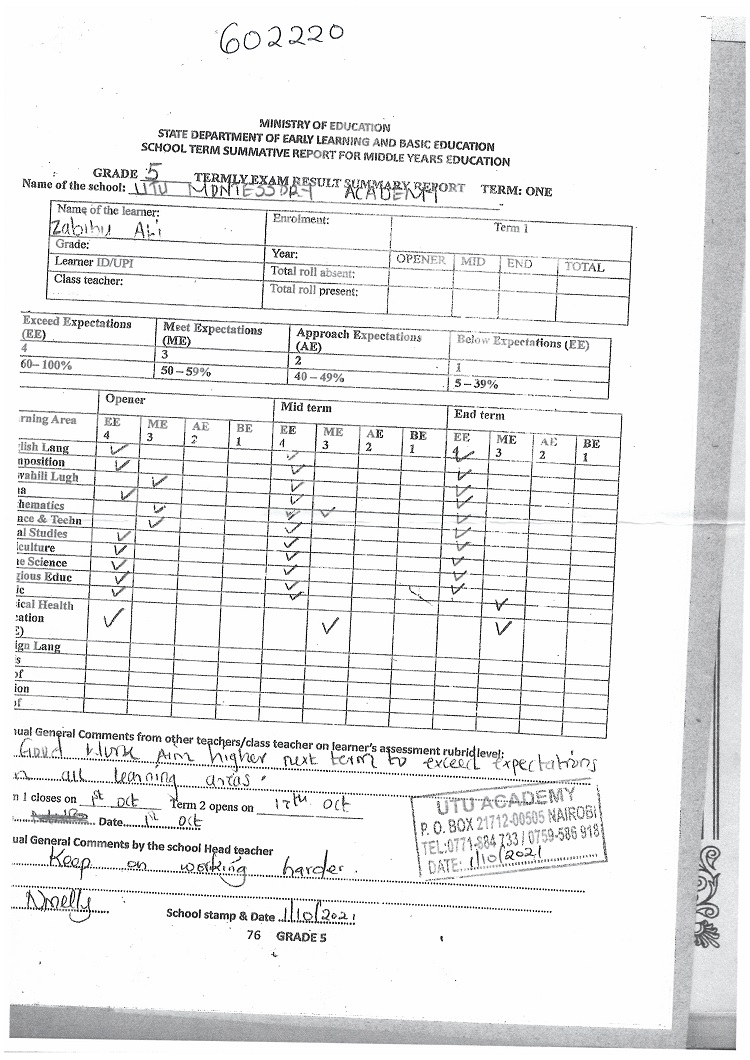 602220
MINISTRY OF EDUCATION
STATE DEPARTMENT OF EARLY LEARNING AND BASIC EDUCATION
SCHOOL TERM SUMMATIVE REPORT FOR MIDDLE YEARS EDUCATION
GRADE 5 TERMLY EXAM RESULT SUMMARY REPORT TERM: ONE
Name of the school: UTU MONTESSORI ACADEMY
Name of the learner: Enrolment: Term 1
Zabihu Ali
Grade: Year: OPENER MID END TOTAL
Learner ID/UPI Total roll absent:
Class teacher: Total roll present:
Exceed Expectations (EE) Meet Expectations (ME) Approach Expectations (AE) Below Expectations (EE)
4 3 2 1
60–100% 50–59% 40–49% 5–39%
Opener Mid term End term
rning Area EE 4 ME 3 AE 2 BE 1 EE 4 ME 3 AE 2 BE 1 EE 4 ME 3 AE 2 BE 1
lish Lang ✓ ✓ ✓
position ✓ ✓ ✓
wahili Lugh ✓ ✓ ✓
a ✓ ✓ ✓
hematics ✓ ✓ ✓ ✓
nce & Techn ✓ ✓ ✓
al Studies ✓ ✓ ✓
iculture ✓ ✓ ✓
e Science ✓ ✓ ✓
gious Educ ✓ ✓ ✓
ic ✓ ✓ ✓
ical Health ✓
ation ✓ ✓ ✓
E)
ign Lang
s
of
ion
of
ual General Comments from other teachers/class teacher on learner's assessment rubric level:
Good work Aim higher next term to exceed expectations
in all learning areas.
n 1 closes on 1st Oct Term 2 opens on 12th Oct
Date 1st Oct
UTU ACADEMY
P. O. BOX 21712-00505 NAIROBI
TEL:0771-884 733 / 0759-586 918
DATE: 1/10/2021
ual General Comments by the school Head teacher
Keep on working harder.
School stamp & Date 1/10/2021
76 GRADE 5